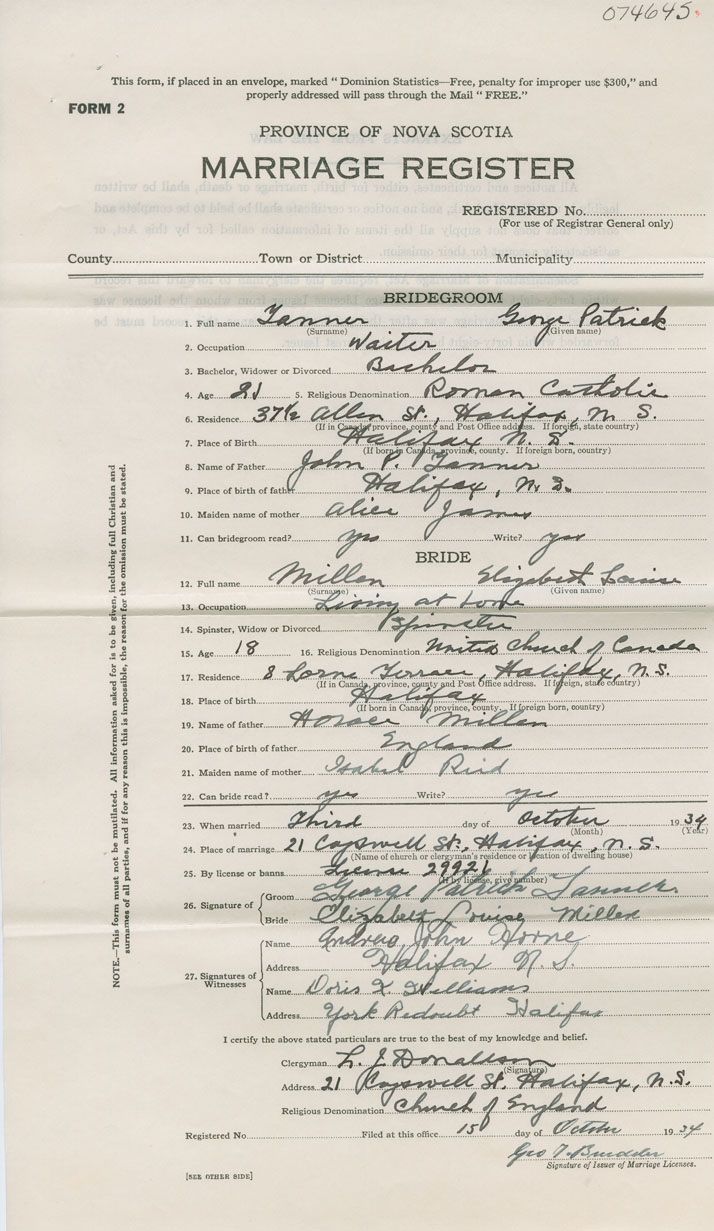 074645
This form, if placed in an envelope, marked “ Dominion Statistics—Free, penalty for improper use $300,” and
properly addressed will pass through the Mail “ FREE.”
FORM 2
PROVINCE OF NOVA SCOTIA
MARRIAGE REGISTER
REGISTERED No.
(For use of Registrar General only)
County Town or District Municipality
BRIDEGROOM
1. Full name Tanner George Patrick
(Surname) (Given name)
2. Occupation Waiter
3. Bachelor, Widower or Divorced Bachelor
4. Age 21 5. Religious Denomination Roman Catholic
6. Residence 37½ Allen St., Halifax, N. S.
(If in Canada, province, county and Post Office address. If foreign, state country)
7. Place of Birth Halifax N. S.
(If born in Canada, province, county. If foreign born, country)
8. Name of Father John P. Tanner
9. Place of birth of father Halifax, N. S.
10. Maiden name of mother Alice James
11. Can bridegroom read? yes Write? yes
BRIDE
12. Full name Millen Elizabeth Louise
(Surname) (Given name)
13. Occupation Living at home
14. Spinster, Widow or Divorced Spinster
15. Age 18 16. Religious Denomination United Church of Canada
17. Residence 8 Lorne Terrace, Halifax, N.S.
(If in Canada, province, county and Post Office address. If foreign, state country)
18. Place of birth Halifax
(If born in Canada, province, county. If foreign born, country)
19. Name of father Horace Millen
20. Place of birth of father England
21. Maiden name of mother Isabel Reid
22. Can bride read? yes Write? yes
23. When married Third day of October 1934
(Month) (Year)
24. Place of marriage 21 Cogswell St., Halifax, N. S.
(Name of church or clergyman's residence or location of dwelling house)
25. By license or banns License 29921
(If by license, give number)
26. Signature of Groom George Patrick Tanner
Bride Elizabeth Louise Millen
27. Signatures of Witnesses
Name Andrew John Horne
Address Halifax N. S.
Name Doris Williams
Address York Redoubt Halifax
I certify the above stated particulars are true to the best of my knowledge and belief.
Clergyman L. J. Donaldson
(Signature)
Address 21 Cogswell St. Halifax, N.S.
Religious Denomination Church of England
Registered No. Filed at this office 15 day of October 1934
Geo
Signature of Issuer of Marriage Licenses.
[SEE OTHER SIDE]
NOTE.—This form must not be mutilated. All information asked for is to be given, including full Christian and
surnames of all parties, and if for any reason this is impossible, the reason for the omission must be stated.